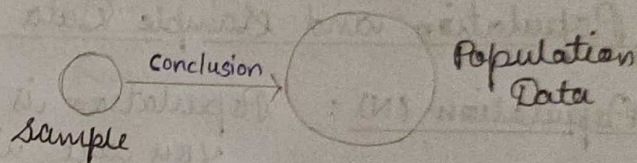 Conclusion
Population
Data
sample